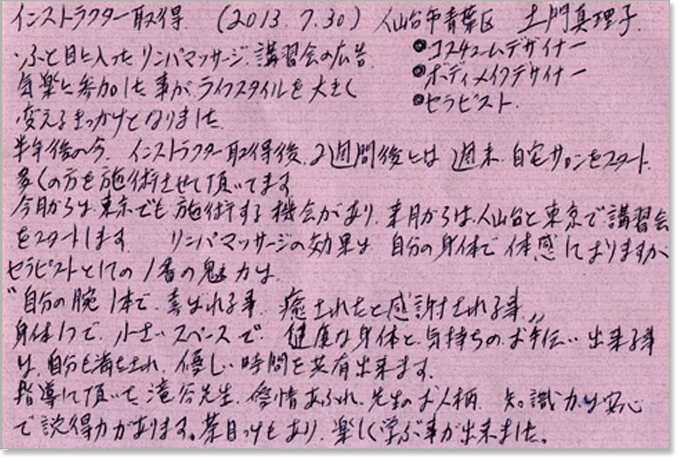 インストラクター取得 (2013.7.30) 仙台市青葉区 土門真理子
・ふと目に入ったリンパマッサージ講習会の広告
●コスチュームデザイナー
気楽に参加した事がライフスタイルを大きく
●ボディメイクデザイナー
変えるきっかけとなりました
●セラピスト
半年後の今、インストラクター取得後、2週間後には週末自宅サロンをスタート
多くの方を施術させて頂いてます
今月からは東京でも施術する機会があり、来月からは仙台と東京で講習会
をスタートします リンパマッサージの効果は自分の身体で体感しておりますが
セラピストとしての1番の魅力は
"自分の腕1本で、喜ばれる事、癒されたと感謝される事"
身体1つで、小さいスペースで 健康な身体と気持ちのお手伝い出来る事
は、自分も満たされ、優しい時間を共有出来ます。
指導して頂いた滝谷先生、情あふれ、先生のお人柄、知識力は安心
で説得力があります。茶目っけもあり、楽しく学ぶ事が出来ました。